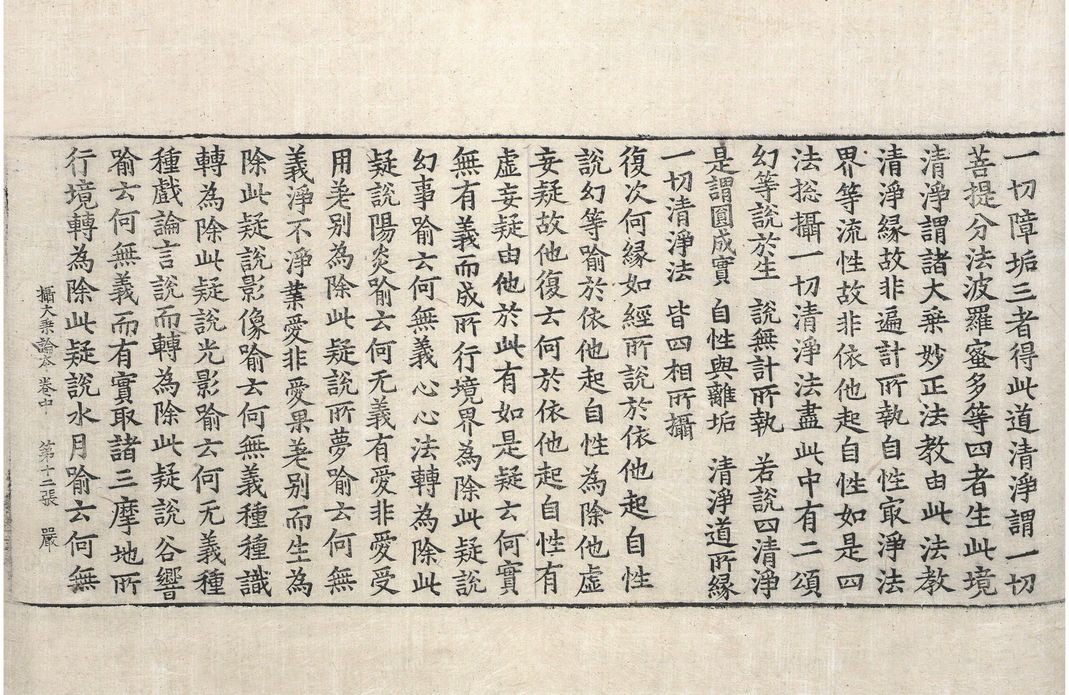 一切障垢三者得此道清淨謂一切
菩提分法波羅蜜多等四者生此境
清淨謂諸大乗妙正法教由此法教
清淨縁故非遍計所執自性㝡淨法
界等流性故非依他起自性如是四
法捴攝一切清淨法盡此中有二頌
幻等說於生 說無計所執 若說四清淨
是謂圓成實 自性與離垢 清淨道所縁
一切清淨法 皆四相所攝
復次何縁如經所說於依他起自性
說幻等喻於依他起自性為除他虚
妄疑故他復云何於依他起自性有
虚妄疑由他於此有如是疑云何實
無有義而成所行境界為除此疑說
幻事喻云何無義心心法轉為除此
疑說陽炎喻云何无義有愛非愛受
用差别為除此疑說所夢喻云何無
義淨不淨業愛非愛果差别而生為
除此疑說影像喻云何無義種種識
轉為除此疑說光影喻云何无義種
種戲論言說而轉為除此疑說谷響
喻云何無義而有實取諸三摩地所
行境轉為除此疑說水月喻云何無
攝大乗論本 卷中 第十二張 嚴